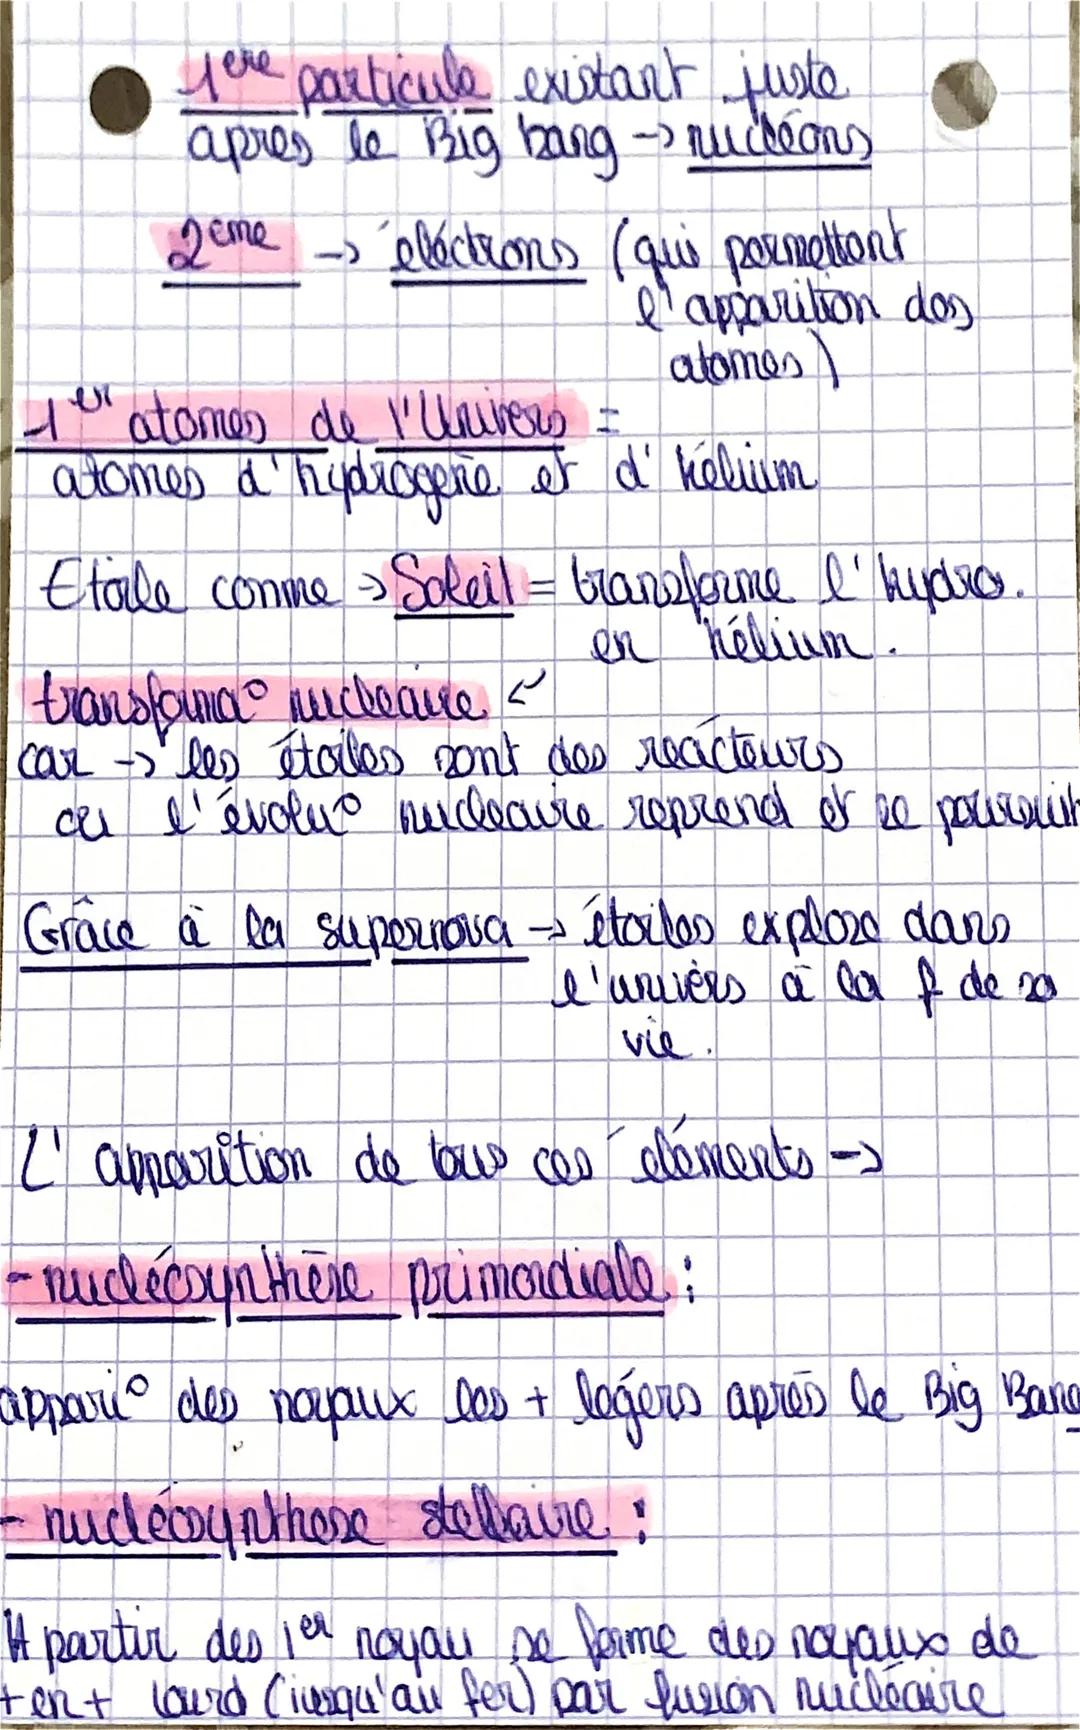 1ere particule existant juste
apres le Big bang -> nucléons
2eme -> éléctrons (qui permettent
l'apparition des
atomes)
1er atomes de l'Univers =
atomes d'hydrogene et d'hélium
Etoile comme -> Soleil = transforme l'hydro.
en hélium.
transforma° nucleaire <-
car -> les étoiles sont des reacteurs
ou l'évolu° nucleaire reprend et se poursuit
Grâce à la supernova -> étoiles explose dans
l'univers à la f de sa
vie.
L'apparition de tous ces éléments ->
- nucléosynthèse primordiale :
appari° des noyaux les + légers après le Big Bang
- nucléosynthese stellaire :
A partir des 1er noyau se forme des noyaux de
+ en + lourd (jusqu'au fer) par fusion nucléaire